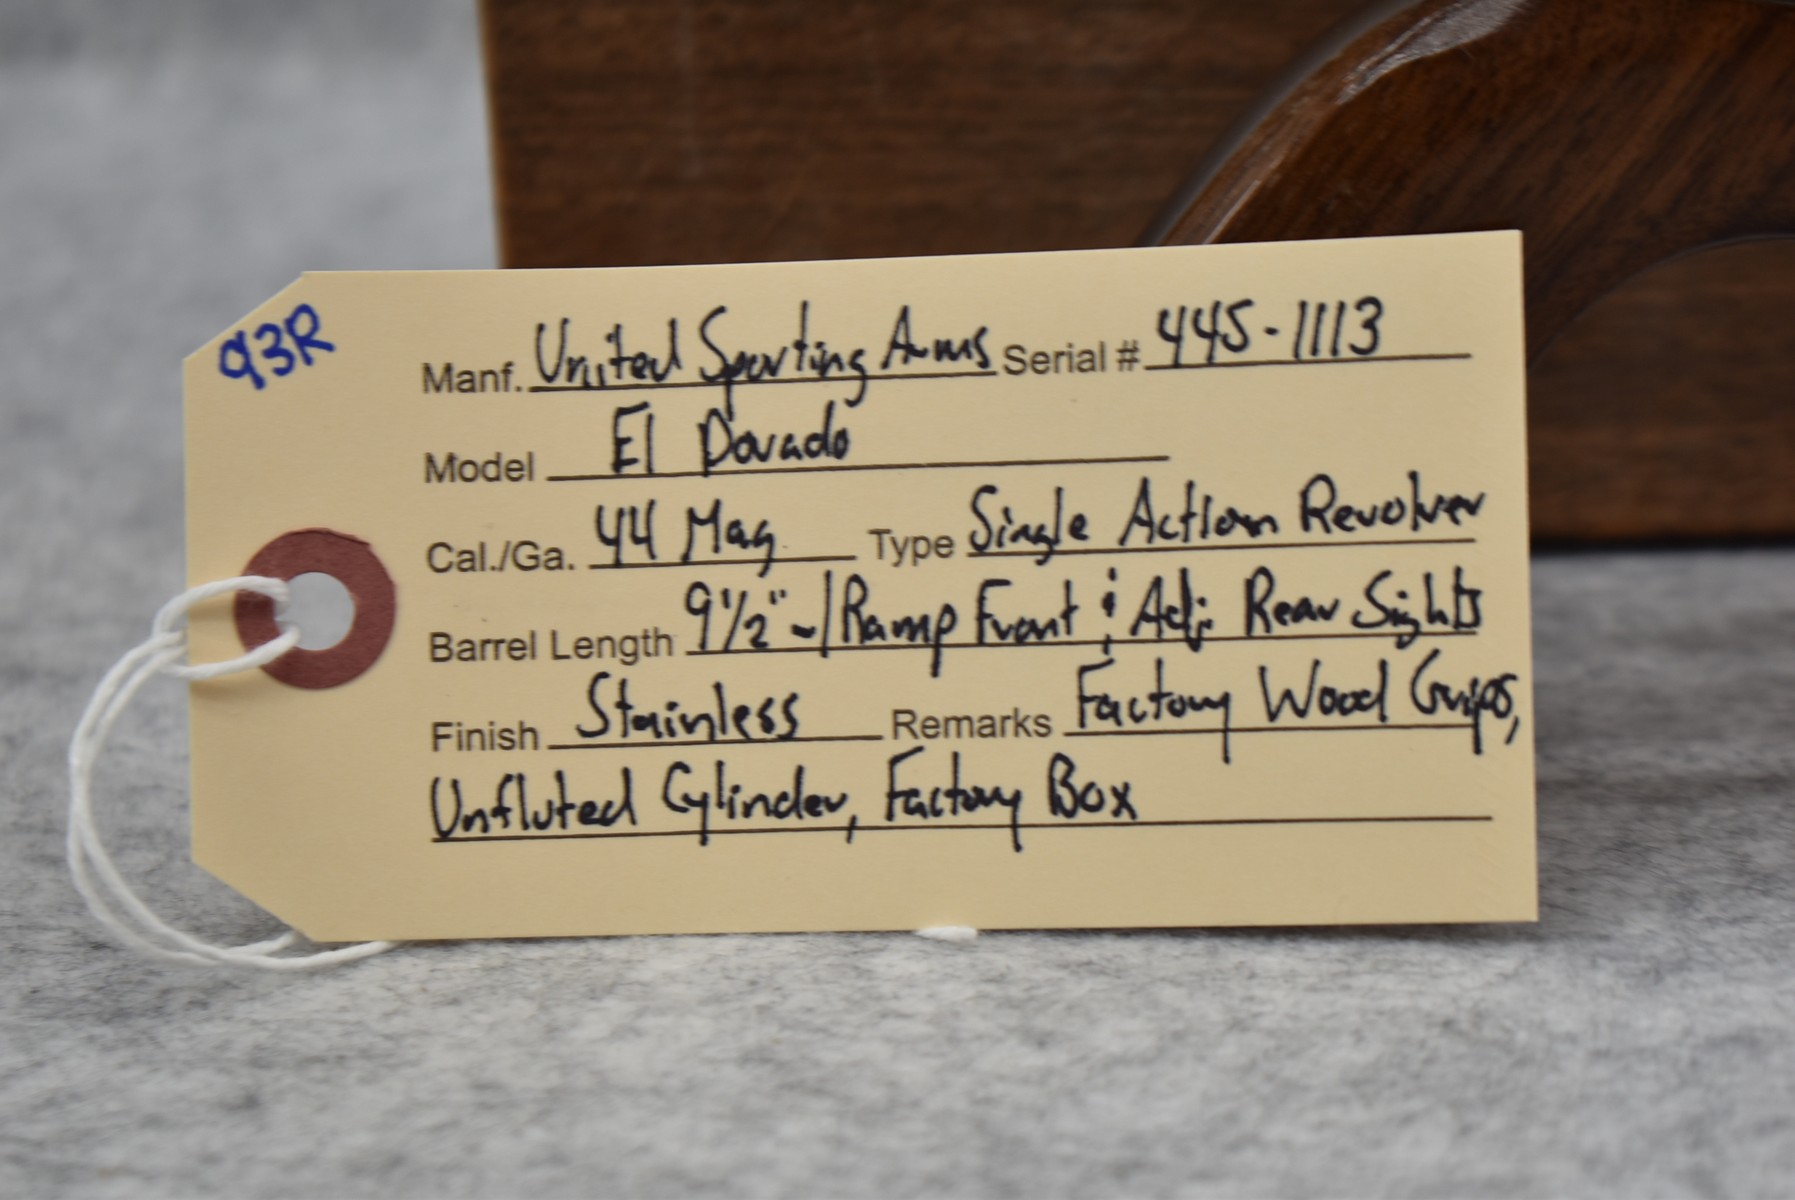 93R
Manf. United Sporting Arms Serial # 445-1113
Model El Dorado
Cal./Ga. 44 Mag Type Single Action Revolver
Barrel Length 9 1/2" ~/Ramp Front & Adj. Rear Sights
Finish Stainless Remarks Factory Wood Grips,
Unfluted Cylinder, Factory Box